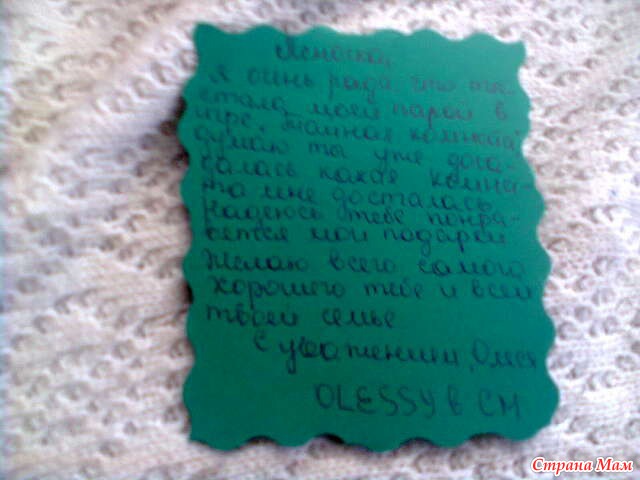 Я очень рада, что ты
стала моей парой в
игре "Тайная комната"
думаю ты уже дога-
далась какая комна-
та мне досталась.
Надеюсь тебе понра-
вятся мои подарки
Желаю всего самого
хорошего тебе и всей
твоей семье
С уважением, Олеся
OLESSY в СМ
Страна Мам